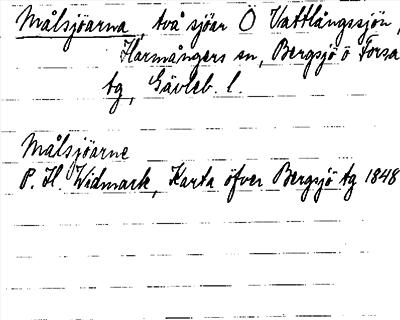 Målsjöarna, två sjöar O Vattlångssjön,
Harmångers sn, Bergsjö o Forsa
tg, Gävleb. l.
Målsjöarne
P. H. Widmark, Karta öfver Bergsjö tg 1848